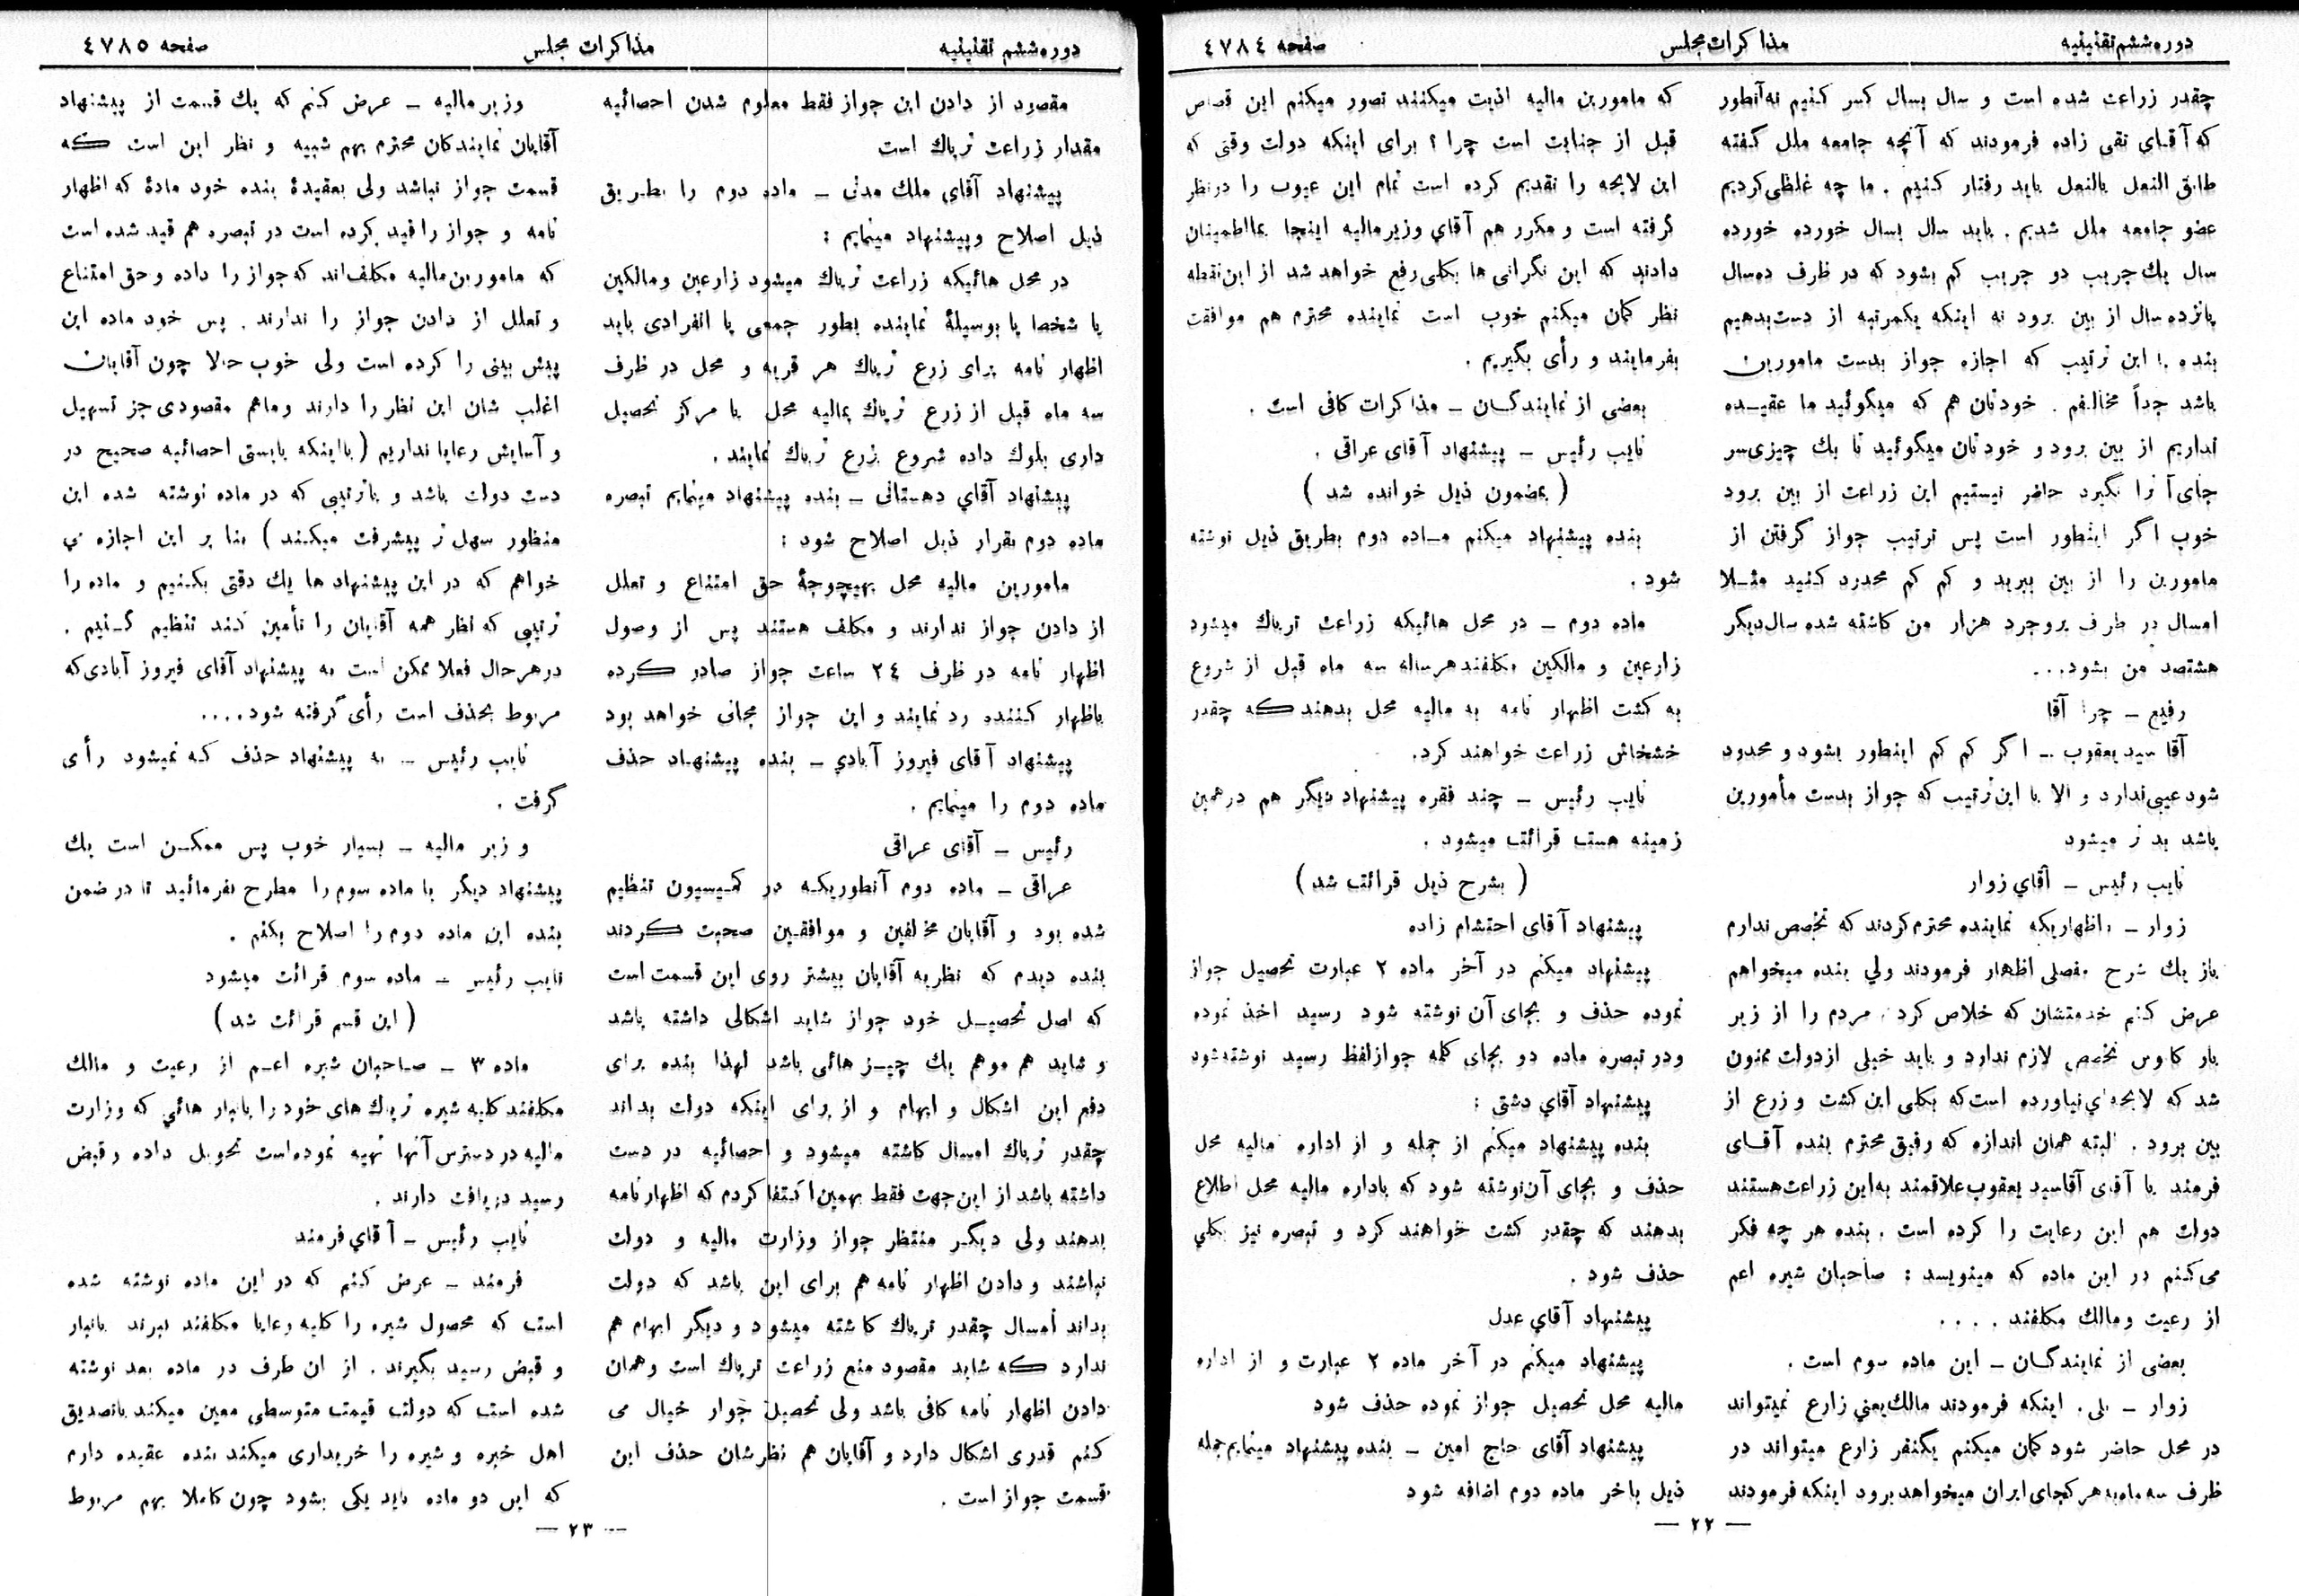 دوره ششم تقنینیه
مذاکرات مجلس
صفحه ٤٧٨٤
چقدر زراعت شده است و سال بسال کسر کنیم نه آنطور
که آقای تقی زاده فرمودند که آنچه جامعه ملل گفته
طابق النعل بالنعل باید رفتار کنیم . ما چه غلطی کردیم
عضو جامعه ملل شدیم . باید سال بسال خورده خورده
سال یك جریب دو جریب کم بشود که در ظرف ده سال
پانزده سال از بین برود نه اینکه یکمرتبه از دست بدهیم
بنده با این ترتیب که اجازه جواز بدست مامورین
باشد جداً مخالفم . خودتان هم که میگوئید ما عقیده
نداریم از بین برود و خودتان میگوئید تا یك چیزی سر
جای آنرا نگیرد حاضر نیستیم این زراعت از بین برود
خوب اگر اینطور است پس ترتیب جواز گرفتن از
مامورین را از بین ببرید و کم کم محدود کنید مثلا
امسال در طرف بروجرد هزار من کاشته شده سال دیگر
هشتصد من بشود...
رفیع ـ چرا آقا
آقا سید یعقوب ـ اگر کم کم اینطور بشود و محدود
شود عیبی ندارد و الا با این ترتیب که جواز بدست مأمورین
باشد بدتر میشود
نایب رئیس ـ آقاي زوار
زوار ـ اظهاریکه نماینده محترم کردند که تخصص ندارم
باز یك شرح مفصلی اظهار فرمودند ولي بنده میخواهم
عرض کنم خدمتشان که خلاص کردن مردم را از زیر
بار کابوس تخصص لازم ندارد و باید خیلی از دولت ممنون
شد که لایحه‌ای نیاورده است که بکلی این کشت و زرع از
بین برود . البته همان اندازه که رفیق محترم بنده آقای
فرمند با آقای آقاسید یعقوب علاقمند به این زراعت هستند
دولت هم این رعایت را کرده است . بنده هر چه فکر
می کنم در این ماده که مینویسد : صاحبان شیره اعم
از رعیت و مالك مکلفند . . . .
بعضی از نمایندگان ـ این ماده سوم است .
زوار ـ بلی . اینکه فرمودند مالك یعني زارع نمیتواند
در محل حاضر شود گمان میکنم یکنفر زارع میتواند در
ظرف سه ماه به هر کجای ایران میخواهد برود اینکه فرمودند
که مامورین مالیه اذیت میکنند تصور میکنم این قصاص
قبل از جنایت است چرا ؟ برای اینکه دولت وقتی که
این لایحه را تقدیم کرده است تمام این عیوب را در نظر
گرفته است و مکرر هم آقاي وزیر مالیه اینجا بما اطمینان
دادند که این نگرانی ها بکلی رفع خواهد شد از این نقطه
نظر گمان میکنم خوب است نماینده محترم هم موافقت
بفرمایند و رأی بگیریم .
بعضی از نمایندگان ـ مذاکرات کافی است .
نایب رئیس ـ پیشنهاد آقای عراقی .
( بمضمون ذیل خوانده شد )
بنده پیشنهاد میکنم ماده دوم بطریق ذیل نوشته
شود .
ماده دوم ـ در محل هائیکه زراعت تریاك میشود
زارعین و مالکین مکلفند هرساله سه ماه قبل از شروع
به کشت اظهار نامه به مالیه محل بدهند که چقدر
خشخاش زراعت خواهند کرد.
نایب رئیس ـ چند فقره پیشنهاد دیگر هم در همین
زمینه هست قرائت میشود .
( بشرح ذیل قرائت شد )
پیشنهاد آقای احتشام زاده
پیشنهاد میکنم در آخر ماده ۲ عبارت تحصیل جواز
نموده حذف و بجای آن نوشته شود رسید اخذ نموده
و در تبصره ماده دو بجای کلمه جواز لفظ رسید نوشته شود
پیشنهاد آقاي دشتی :
بنده پیشنهاد میکنم از جمله و از اداره مالیه محل
حذف و بجای آن نوشته شود که باداره مالیه محل اطلاع
بدهند که چقدر کشت خواهند کرد و تبصره نیز بکلي
حذف شود .
پیشنهاد آقاي عدل
پیشنهاد میکنم در آخر ماده ۲ عبارت و از اداره
مالیه محل تحصیل جواز نموده حذف شود
پیشنهاد آقای حاج امین ـ بنده پیشنهاد مینمایم جمله
ذیل باخر ماده دوم اضافه شود
— ۲۲ —
دوره ششم تقنینیه
مذاکرات مجلس
صفحه ٤٧٨٥
مقصود از دادن این جواز فقط معلوم شدن احصائیه
مقدار زراعت تریاك است
پیشنهاد آقای ملك مدنی ـ ماده دوم را بطریق
ذیل اصلاح و پیشنهاد مینمایم :
در محل هائیکه زراعت تریاك میشود زارعین و مالکین
یا شخصا یا بوسیلهٔ نماینده بطور جمعی یا انفرادی باید
اظهار نامه برای زرع تریاك هر قریه و محل در ظرف
سه ماه قبل از زرع تریاك بمالیه محل یا مرکز تحصیل
داری بلوك داده شروع بزرع تریاك نمایند .
پیشنهاد آقاي دهستانی ـ بنده پیشنهاد مینمایم تبصره
ماده دوم بقرار ذیل اصلاح شود :
مامورین مالیه محل بهیچوجهٔ حق امتناع و تعلل
از دادن جواز ندارند و مکلف هستند پس از وصول
اظهار نامه در ظرف ٢٤ ساعت جواز صادر کرده
باظهار کننده رد نمایند و این جواز مجانی خواهد بود
پیشنهاد آقای فیروز آبادي ـ بنده پیشنهاد حذف
ماده دوم را مینمایم .
رئیس ـ آقای عراقی
عراقی ـ ماده دوم آنطوریکه در کمیسیون تنظیم
شده بود و آقایان مخالفین و موافقین صحبت کردند
بنده دیدم که نظریه آقایان بیشتر روی این قسمت است
که اصل تحصیل خود جواز شاید اشکالی داشته باشد
و شاید هم موهم یك چیز هائی باشد لهذا بنده برای
دفع این اشکال و ابهام و از برای اینکه دولت بداند
چقدر تریاك امسال کاشته میشود و احصائیه در دست
داشته باشد از این جهت فقط بهمین اکتفا کردم که اظهار نامه
بدهند ولی دیگر منتظر جواز وزارت مالیه و دولت
نباشند و دادن اظهار نامه هم برای این باشد که دولت
بداند امسال چقدر تریاك کاشته میشود و دیگر ابهام هم
ندارد که شاید مقصود منع زراعت تریاك است و همان
دادن اظهار نامه کافی باشد ولی تحصیل جواز خیال می
کنم قدری اشکال دارد و آقایان هم نظرشان حذف این
قسمت جواز است .
وزیر مالیه ـ عرض کنم که یك قسمت از پیشنهاد
آقایان نمایندگان محترم بهم شبیه و نظر این است که
قسمت جواز نباشد ولی بعقیدهٔ بنده خود مادهٔ که اظهار
نامه و جواز را قید کرده است در تبصره هم قید شده است
که مامورین مالیه مکلف اند که جواز را داده و حق امتناع
و تعلل از دادن جواز را ندارند . پس خود ماده این
پیش بینی را کرده است ولی خوب حالا چون آقایان
اغلب شان این نظر را دارند و ما هم مقصودی جز تسهیل
و آسایش رعایا نداریم ( با اینکه بایستی احصائیه صحیح در
دست دولت باشد و با ترتیبی که در ماده نوشته شده این
منظور سهل تر پیشرفت میکند ) بنا بر این اجازه می
خواهم که در این پیشنهاد ها یك دقتی بکنیم و ماده را
ترتیبی که نظر همه آقایان را تأمین کند تنظیم کنیم .
در هر حال فعلا ممکن است به پیشنهاد آقای فیروز آبادی که
مربوط بحذف است رأی گرفته شود....
نایب رئیس ـ به پیشنهاد حذف که نمیشود رأی
گرفت .
وزیر مالیه ـ بسیار خوب پس ممکن است یك
پیشنهاد دیگر یا ماده سوم را مطرح بفرمائید تا در ضمن
بنده این ماده دوم را اصلاح بکنم .
نایب رئیس ـ ماده سوم قرائت میشود
( این قسم قرائت شد )
ماده ۳ ـ صاحبان شیره اعم از رعیت و مالك
مکلفند کلیه شیره تریاك های خود را بانبار هائي که وزارت
مالیه در دسترس آنها تهیه نموده است تحویل داده و قبض
رسید دریافت دارند .
نایب رئیس ـ آقاي فرمند
فرمند ـ عرض کنم که در این ماده نوشته شده
است که محصول شیره را کلیه رعایا مکلفند ببرند بانبار
و قبض رسید بگیرند . از ان طرف در ماده بعد نوشته
شده است که دولت قیمت متوسطی معین میکند باتصدیق
اهل خبره و شیره را خریداری میکند بنده عقیده دارم
که این دو ماده باید یکی بشود چون کاملا بهم مربوط
— ۲۳ —